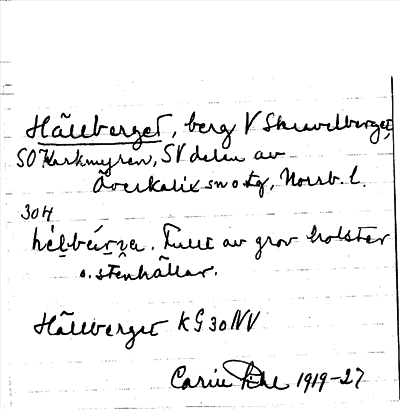 Hällberget, berg V Skravelberget,
SO Karkmyran, SV delen av
Överkalix sn o tg, Norrb. l.
304
hélbǽrɡa. Fullt av grov bolster
o. stenhällar.
Hällberget KG 30 NV
Carin 1919-27